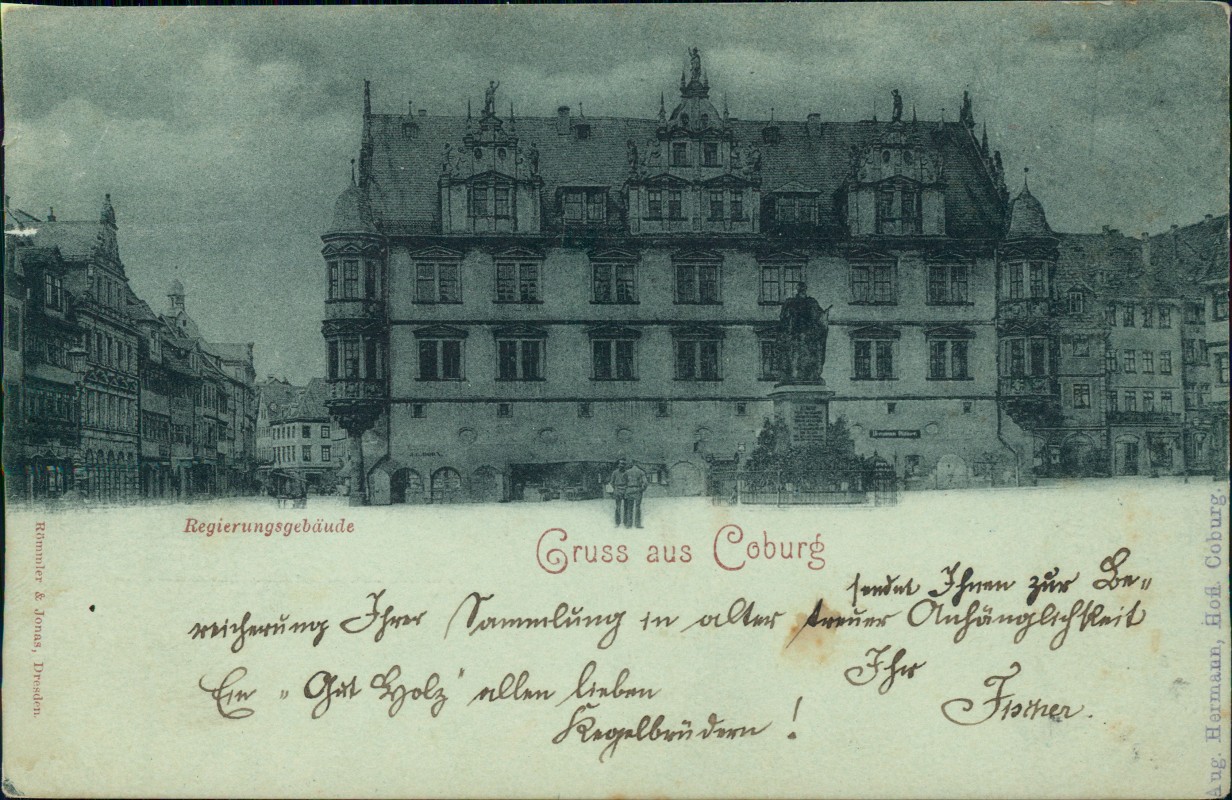 Regierungsgebäude
Gruss aus Coburg
sendet Ihnen zur Be-
reicherung Ihrer Sammlung in alter treuer Anhänglichkeit
Ihr
Ein „Gut Holz" allen lieben
Fischer.
Kegelbrüdern!
Römmler & Jonas, Dresden.
Aug. Hermann, Hofl. Coburg.